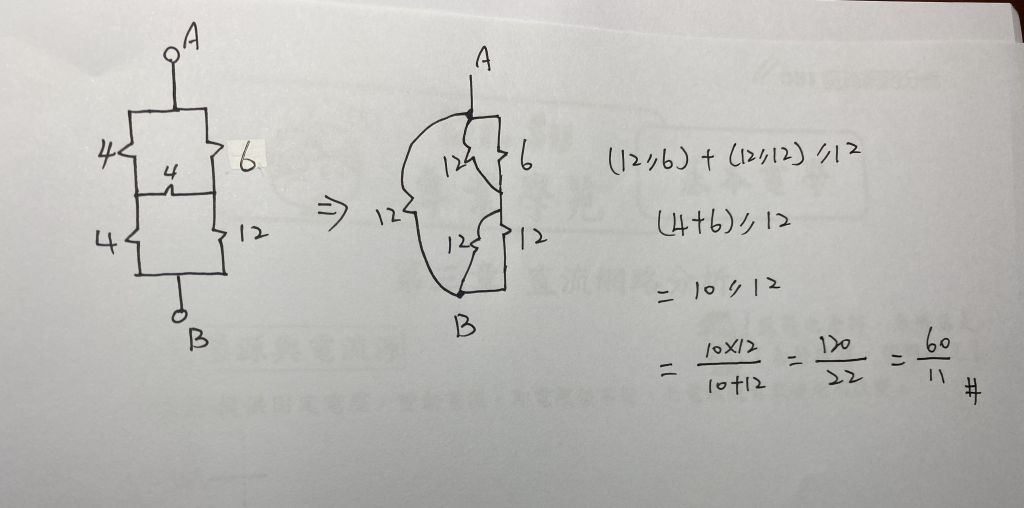 A
4
6
4
4
12
B
⇒
A
12
6
12
12
12
B
(12//6) + (12//12) //12
(4+6)//12
= 10//12
= 10×12/10+12 = 120/22 = 60/11 #
直流網路分析
源與電流源